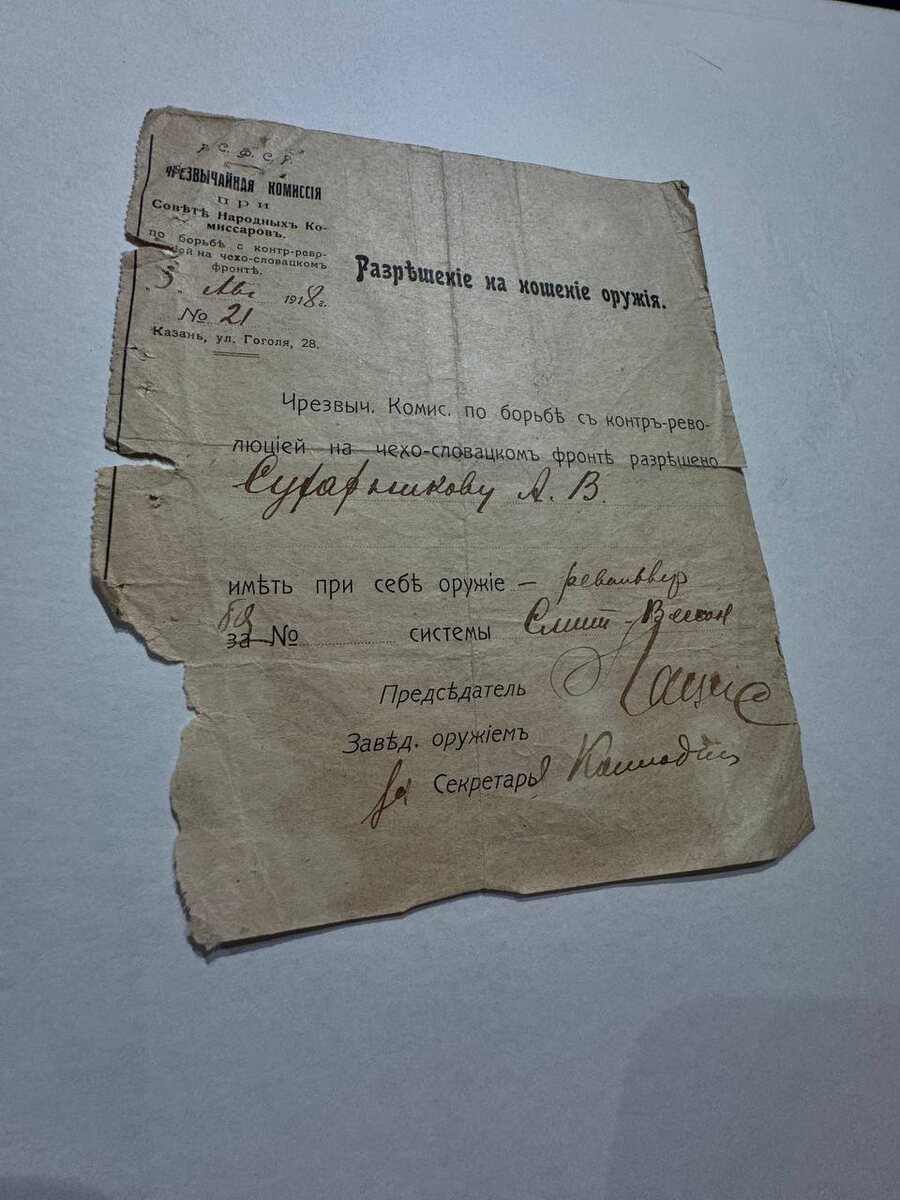 Р. С. Ф. С. Р.
ЧРЕЗВЫЧАЙНАЯ КОМИССІЯ
при
Совѣтѣ Народныхъ Ко-
миссаровъ.
по борьбѣ с контр-рево-
цей на чехо-словацком
фронтѣ.
3 Авг 1918 г.
№ 21
Казань, ул. Гоголя, 28.
Разрѣшеніе на ношеніе оружія.
Чрезвыч. Комис. по борьбѣ съ контръ-рево-
люціей на чехо-словацком фронтѣ разрѣшено
А. В.
имѣть при себѣ оружіе — револьвер
за № системы Смит-Вессон
Предсѣдатель Лацис
Завѣд. оружіемъ
Секретарь